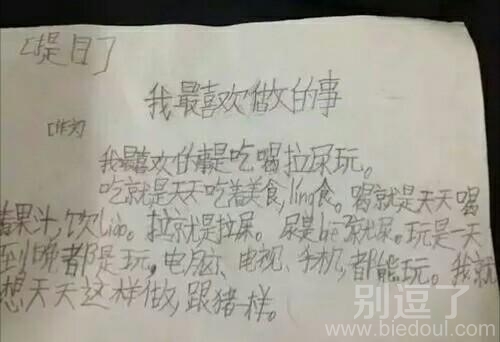 [提目]
我最喜欢做的事
[作文]
我最喜欢的事是吃.喝拉尿玩。
吃就是天天吃着美食,ling食。喝就是天天喝
着果汁,饮liao。拉就是拉屎。尿是bie了就尿。玩是一天
到晚都是玩,电脑、电视、手机,都能玩。我就
想天天这样做,跟猪样。
别逗了
www.biedoul.com